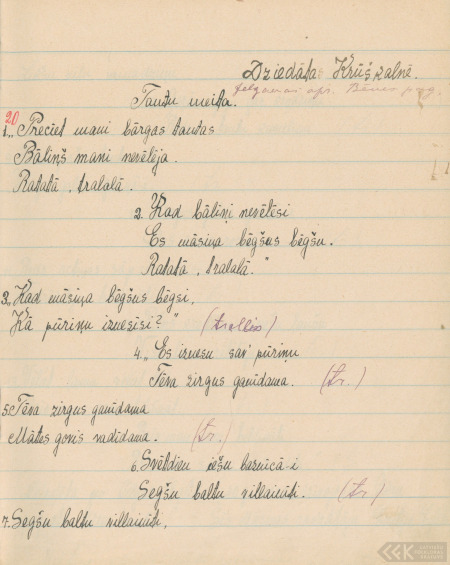 Dziedāta Krūškalnē.
Jelgavas apr. Bēnes pag.
Tautu meita.
20
1. "Preciet mani bārgas tautas
Bāliņš mani nevēlēja.
Ratatā, tralalā.
2. Kad bāliņi nevēlēsi
Es māsiņa bēgšus bēgšu.
Ratatā, tralalā."
3. "Kad māsiņa bēgšus bēgsi,
Kā pūriņu iznesīsi?" (trallis)
4. "Es iznesu sav' pūriņu
Tēva zirgus ganīdama. (tr.)
5. Tēva zirgus ganīdama
Mātes govis vadīdama. (tr.)
6. Svētdien iešu baznīcā-i
Segšu baltu villainīti. (tr)
7. Segšu baltu villainīti,